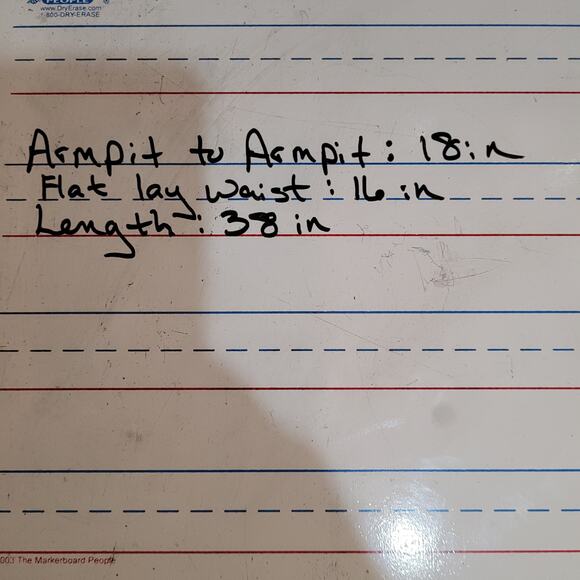 PEOPLE
www.DryErase.com
800-DRY-ERASE
Armpit to Armpit: 18 in
Flat lay waist: 16 in
Length: 38 in
003 The Markerboard People